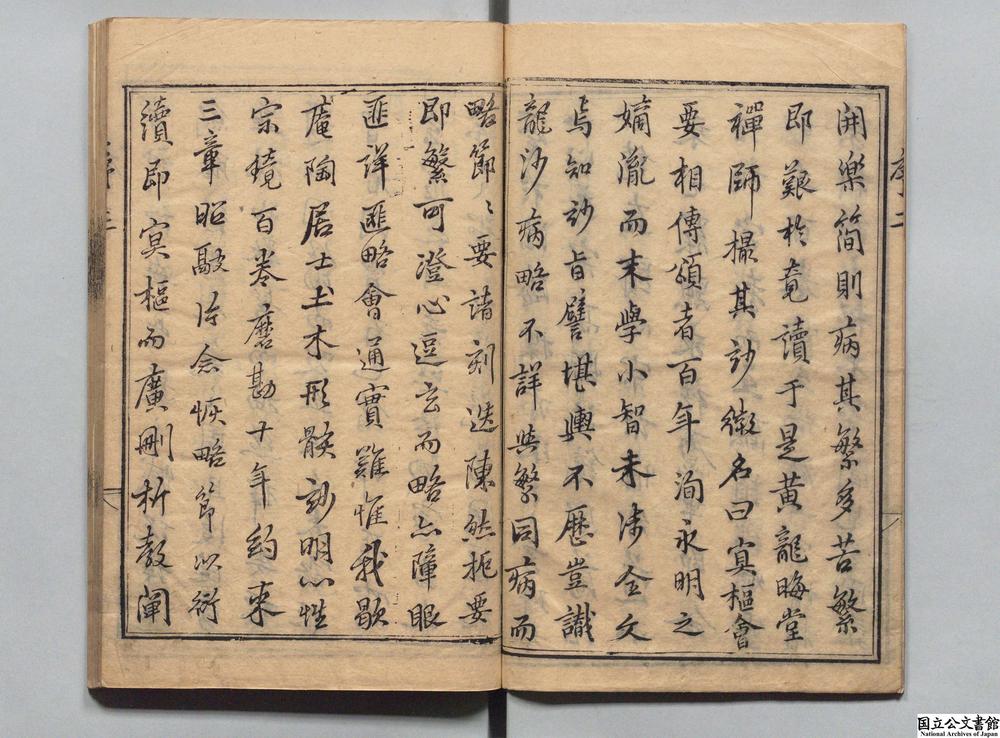 開樂簡則病其繁多苦繁
即艱於竟讀于是黃龍晦堂
禪師撮其玅緻名曰寘樞會
要相傳頌者百年洵永明之
嫡瀧而末學小智未涉全文
焉知玅旨譬堪輿不歷豈識
龍沙病略不詳與繁同病而
略節〻要請刻迭陳然扼要
即繁可澄心逗玄而略亦障眼
匪詳匪略會通實難惟我歇
庵陶居士土木形骸玅明心性
宗鏡百卷磨勘十年約來
三章昭駇片念恢略節以衍
續即冥樞而廣刪析教闡
序二
国立公文書館
National Archives of Japan